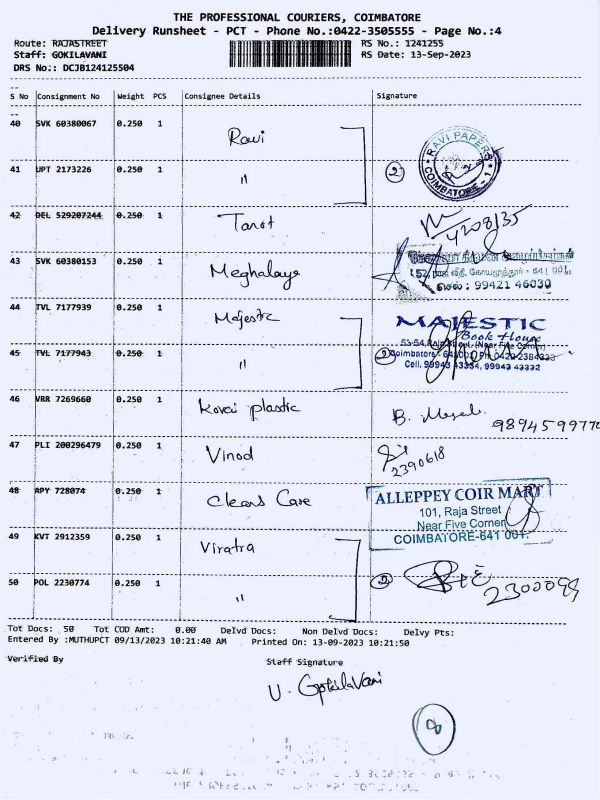 THE PROFESSIONAL COURIERS, COIMBATORE
Delivery Runsheet - PCT - Phone No.:0422-3505555 - Page No.:4
Route: RAJASTREET RS No.: 1241255
Staff: GOKILAVANI RS Date: 13-Sep-2023
DRS No.: DCJB124125504
S No Consignment No Weight PCS Consignee Details Signature
40 SVK 60380067 0.250 1 Ravi
RAVI PAPERS COIMBATORE - 1
41 UPT 2173226 0.250 1 " 2
42 DEL 529207244 0.250 1 Tarot 4208135
43 SVK 60380153 0.250 1 Meghalaya
கோயமுத்தூர் - 641 001.
செல் : 99421 46030
44 TVL 7177939 0.250 1 Majestic
MAJESTIC
Book House
45 TVL 7177943 0.250 1 " 2
Coimbatore - 641 001. Ph: 0422-2384333
Cell. 99943 43334, 99943 43332
46 VRR 7269660 0.250 1 Kovai plastic B. 9894599770
47 PLI 200296479 0.250 1 Vinod 2390618
48 APY 728074 0.250 1 Cleans Care
ALLEPPEY COIR MART
101, Raja Street
Near Five Corner
COIMBATORE-641 001.
49 KVT 2912359 0.250 1 Viratra
50 POL 2230774 0.250 1 " 2 2300099
Tot Docs: 50 Tot COD Amt: 0.00 Delvd Docs: Non Delvd Docs: Delvy Pts:
Entered By :MUTHUPCT 09/13/2023 10:21:40 AM Printed On: 13-09-2023 10:21:50
Verified By Staff Signature
U. Gokilavani
8